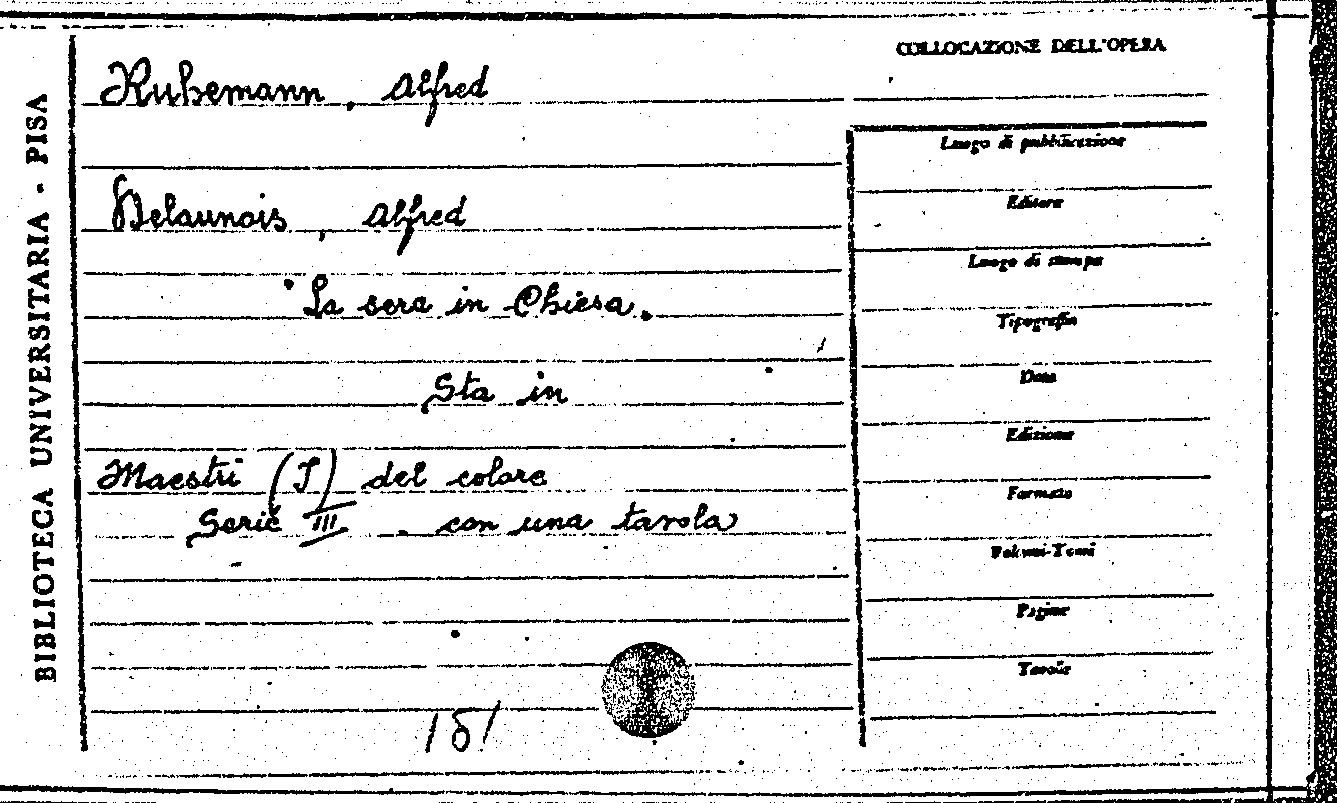 BIBLIOTECA UNIVERSITARIA - PISA
COLLOCAZIONE DELL'OPERA
Ruhemann, Alfred
Delaunois, Alfred
"La sera in Chiesa.
Sta in
Maestri (I) del colore
Serie III. con una tavola
Luogo di pubblicazione
Editore
Luogo di stampa
Tipografia
Data
Edizione
Formato
Volumi-Tomi
Pagine
Tavole